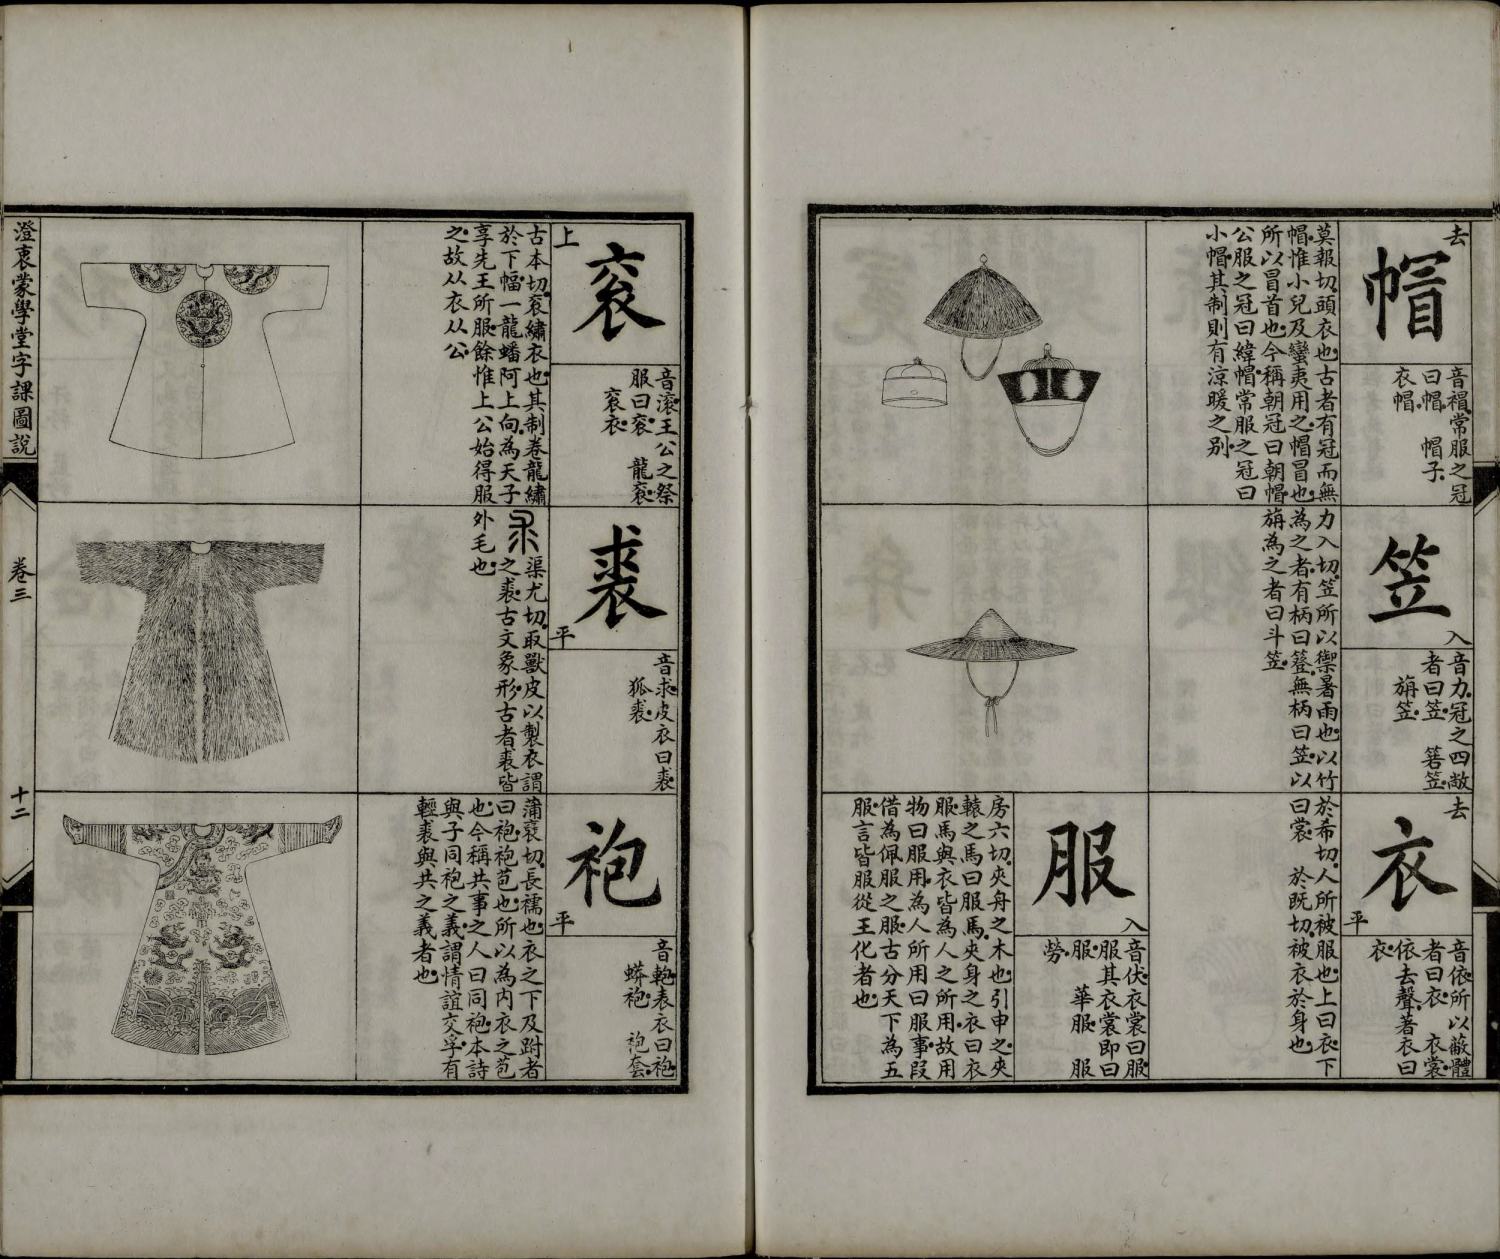 去
帽
音𧛕常服之冠
曰帽 帽子
衣帽
莫報切頭衣也古者有冠而無
帽惟小兒及蠻夷用之帽冒也
所以冒首也今稱朝冠曰朝帽
公服之冠曰緯帽常服之冠曰
小帽其制則有涼暖之别
笠
入
音力冠之四敞
者曰笠 箬笠
旃笠
力入切笠所以禦暑雨也以竹
為之者有柄曰簦無柄曰笠以
旃為之者曰斗笠
去
衣
平
音依所以蔽體
者曰衣 衣裳
依去聲著衣曰
衣
於布切人所被服也上曰衣下
曰裳 於既切被衣於身也
服
入
音伏衣裳曰服
服其衣裳即曰
服 華服 服
勞
房六切夾舟之木也引申之夾
轅之馬曰服馬夾身之衣曰衣
服馬與衣皆為人之所用故用
物曰服用為人所用曰服事段
借為佩服之服古分天下為五
服言皆服從王化者也
上
袞
音滾王公之祭
服曰袞 龍袞
袞衣
古本切袞繡衣也其制卷龍繡
於下幅一龍蟠阿上向為天子
享先王所服餘惟上公始得服
之故从衣从公
裘
平
音求皮衣曰裘
狐裘
渠尤切取獸皮以製衣謂
之裘古文象形古者裘皆
外毛也
袍
平
音匏表衣曰袍
蟒袍 袍套
蒲襃切長襦也衣之下及跗者
曰袍袍苞也所以為内衣之苞
也今稱共事之人曰同袍本詩
與子同袍之義謂情誼交孚有
輕裘與共之義者也
澄衷蒙學堂字課圖說
卷三
十二